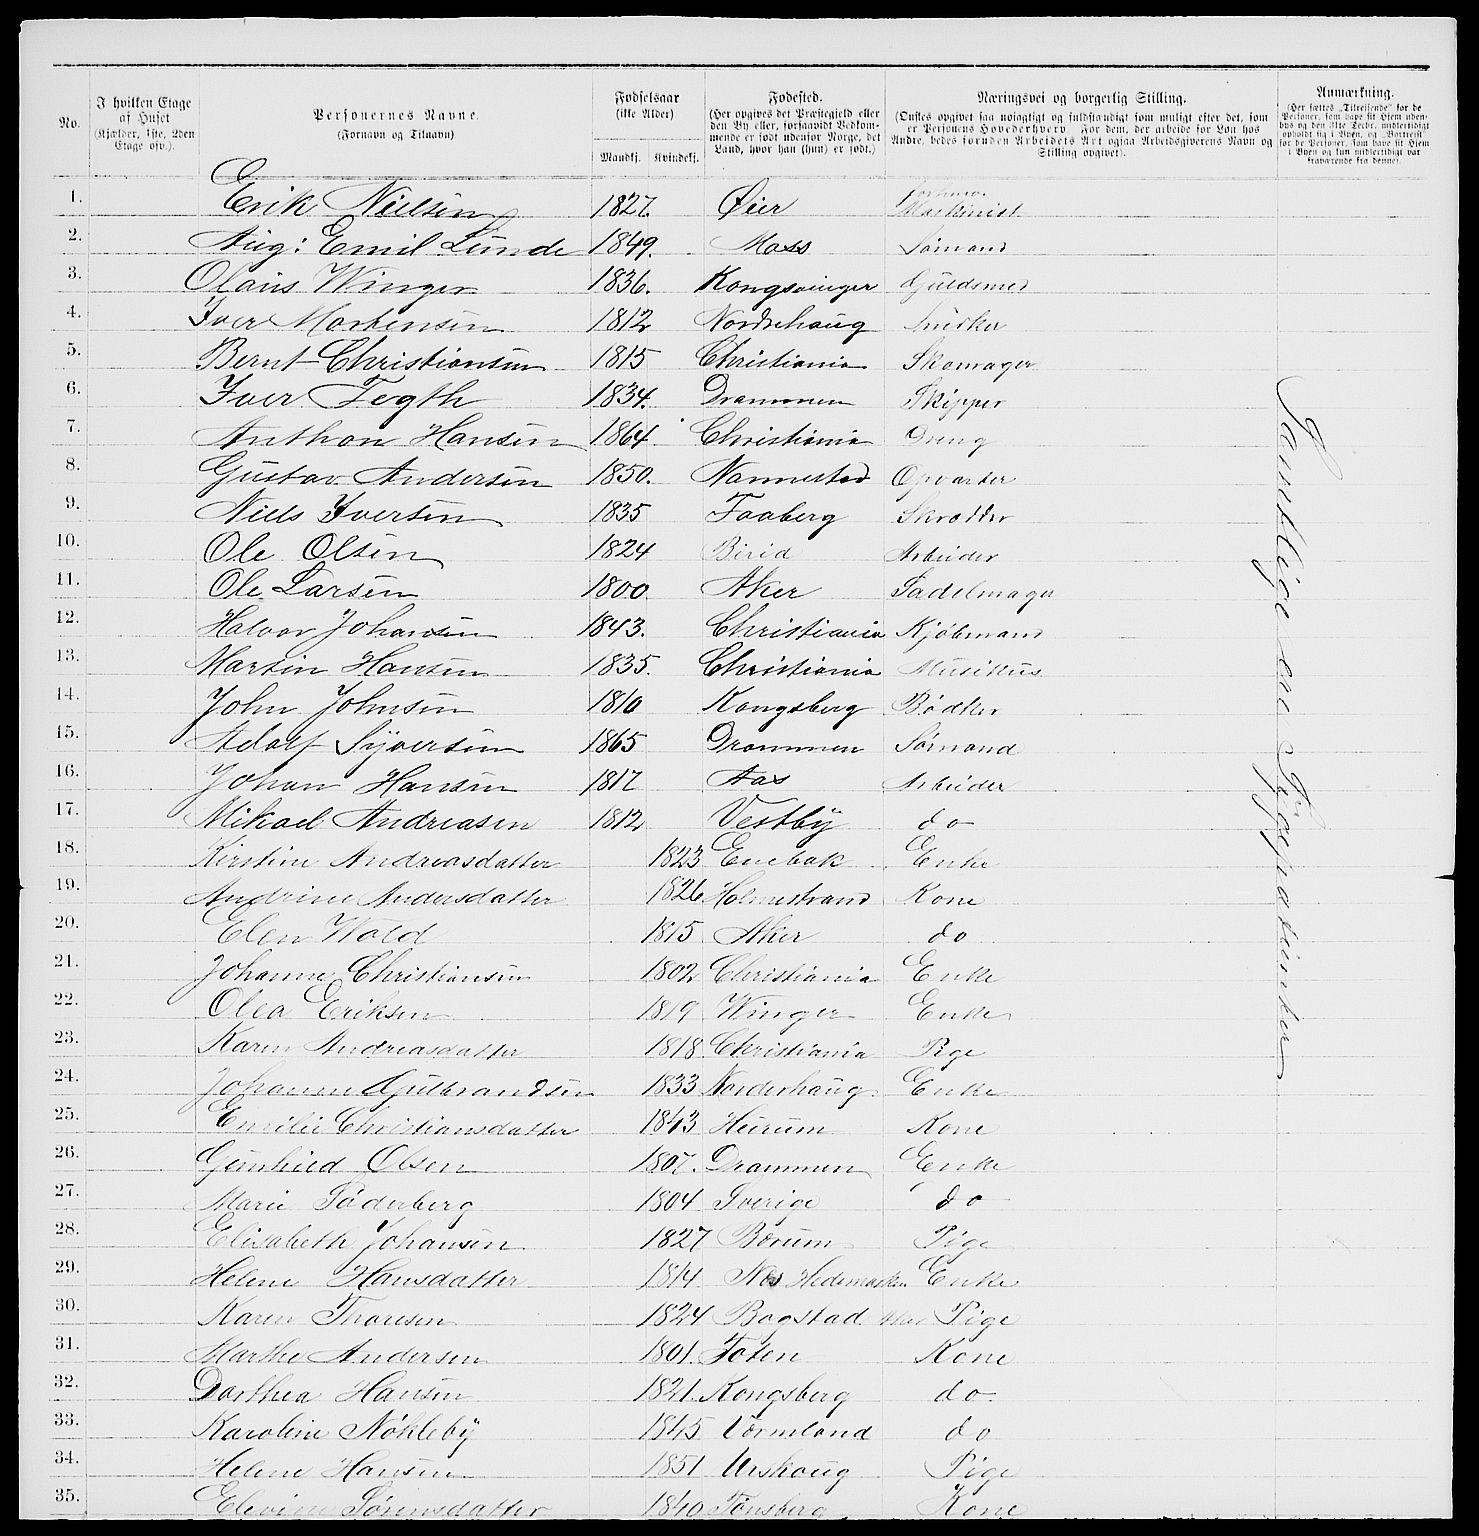 No.
I hvilken Etage af Huset (Kjælder, 1ste, 2den Etage osv.).
Personernes Navne. (Fornavn og Tilnavn)
Fødselsaar (ikke Alder)
Mandkj. Kvindekj.
Fødested. (Her opgives det Præstegjeld eller den By eller, forsaavidt Vedkommende er født udenfor Norge, det Land, hvor han (hun) er født.)
Næringsvei og borgerlig Stilling. (Ønskes opgivet saa nøiagtigt og fuldstændigt som muligt efter det, som er Personens Hovederhverv. For dem, der arbeide for Løn hos Andre, bedes forinden Arbeidets Art ogsaa Arbeidsgiverens Navn og Stilling opgivet).
Anmærkning. (Her sættes „Tilreisende” for de Personer, som have sit Hjem udenbys og den 31te Decbr. midlertidigt opholdt sig i Byen, og „Bortreist” for de Personer, som have sit Hjem i Byen og kun midlertidigt var fraværende fra denne).
1. Erik Nielsen 1827. Øier Maskinist
2. Aug: Emil Lunde 1849. Moss Sømand
3. Olaus Winger 1836. Kongsvinger Guldsmed
4. Iver Mortensen 1812 Nordrehaug Snedker
5. Bernt Christiansen 1815 Christiania Skomager
6. Iver Fegth 1834. Drammen Skipper
7. Anthon Hansen 1864 Christiania Dreng
8. Gustav Andersen 1850. Nannestad Opvarter
9. Niels Iversen 1835 Faaberg Skrædder
10. Ole Olsen 1824 Birid Arbeider
11. Ole Larsen 1800 Aker Sadelmager
12. Halvor Johansen 1843. Christiania Kjøbmand
13. Martin Hansen 1835. Christiania Musikus
14. John Johnsen 1810 Kongsberg Bødker
15. Adolf Syversen 1865 Drammen Sømand
16. Johan Hansen 1817 Aas Arbeider
17. Mikael Andreasen 1812 Vestby do
18. Kirstine Andreasdatter 1823 Enebak Enke
19. Andrine Andersdatter 1826 Holmestrand Kone
20. Elen Wold 1815 Aker do
21. Johanne Christiansen 1802 Christiania Enke
22. Olea Eriksen 1819 Winger Enke
23. Karen Andreasdatter 1818 Christiania Pige
24. Johanne Gulbrandsen 1833 Norderhaug Enke
25. Emilie Christiansdatter 1843 Hurum Kone
26. Gunhild Olsen 1807. Drammen Enke
27. Marie Søderberg 1804 Sverige do
28. Elisabeth Johansen 1827 Bærum Pige
29. Helene Hansdatter 1814 Næs Hedemarken Enke
30. Karen Thoresen 1824 Bogstad Aker Pige
31. Marthe Andersen 1801. Toten Kone
32. Dorthea Hansen 1821. Kongsberg do
33. Karoline Nøkleby 1845 Vermland do
34. Helene Hansen 1851 Urskoug Pige
35. Elevine Sørensdatter 1840 Tønsberg Kone
Samtlige ere Sygepatienter